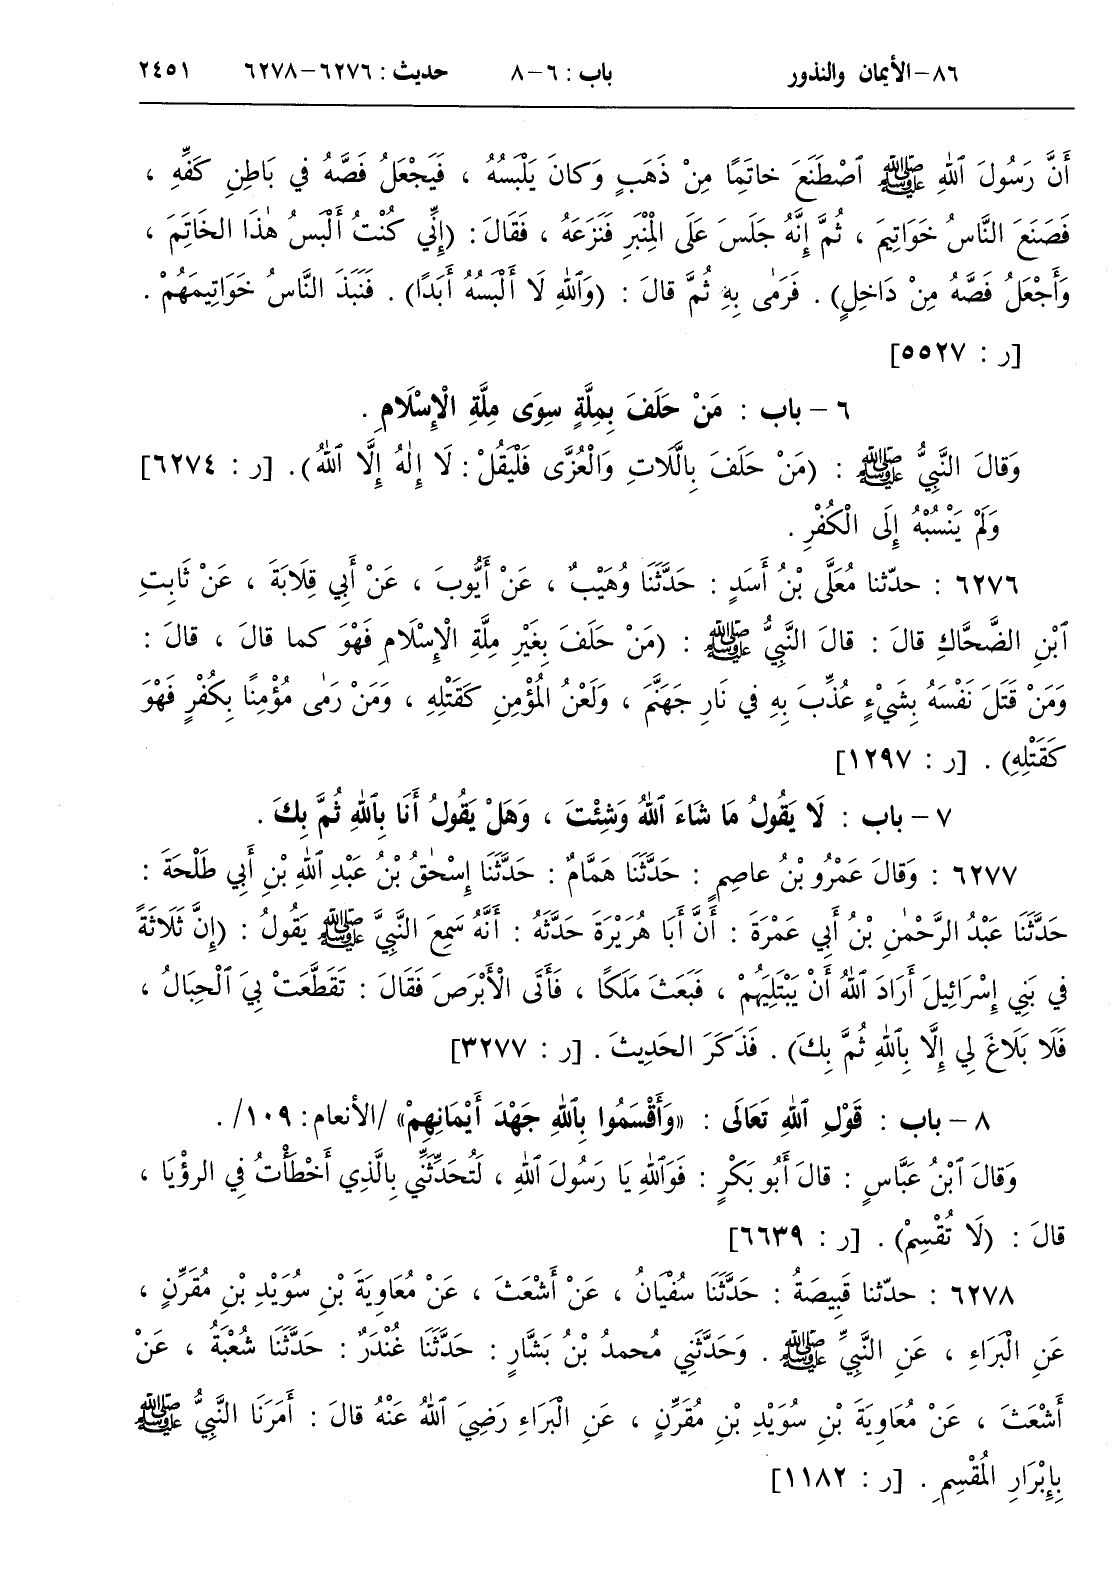 ٨٦-الأيمان والنذور باب : ٦-٨ حديث : ٦٢٧٦-٦٢٧٨ ٢٤٥١
أَنَّ رَسُولَ ٱللهِ ﷺ ٱصْطَنَعَ خاتَمًا مِنْ ذَهَبٍ وَكانَ يَلْبَسُهُ ، فَيَجْعَلُ فَصَّهُ في بَاطِنِ كَفِّهِ ،
فَصَنَعَ النَّاسُ خَوَاتِيمَ ، ثُمَّ إِنَّهُ جَلَسَ عَلَى الْمِنْبَرِ فَنَزَعَهُ ، فَقَالَ : (إِنِّي كُنْتُ أَلْبَسُ هٰذَا الخَاتِمَ ،
وَأَجْعَلُ فَصَّهُ مِنْ دَاخِلٍ) . فَرَمٰى بِهِ ثُمَّ قالَ : (وَٱللهِ لَا أَلْبَسُهُ أَبَدًا) . فَنَبَذَ النَّاسُ خَوَاتِيمَهُمْ .
[ر : ٥٥٢٧]
٦ – باب : مَنْ حَلَفَ بِمِلَّةٍ سِوَى مِلَّةِ الْإِسْلَامِ .
وَقالَ النَّبِيُّ ﷺ : (مَنْ حَلَفَ بِاللَّاتِ وَالْعُزَّى فَلْيَقُلْ : لَا إِلٰهُ إِلَّا ٱللهُ). [ر : ٦٢٧٤]
وَلَمْ يَنْسُبْهُ إِلَى الْكُفْرِ .
٦٢٧٦ : حدّثنا مُعَلَّى بْنُ أَسَدٍ : حَدَّثَنَا وُهَيْبٌ ، عَنْ أَيُّوبَ ، عَنْ أَبِي قِلَابَةَ ، عَنْ ثَابِتِ
ٱبْنِ الضَّحَّاكِ قالَ : قالَ النَّبِيُّ ﷺ : (مَنْ حَلَفَ بِغَيْرِ مِلَّةِ الْإِسْلَامِ فَهْوَ كما قالَ ، قالَ :
وَمَنْ قَتَلَ نَفْسَهُ بِشَيْءٍ عُذِّبَ بِهِ في نَارِ جَهَنَّمَ ، وَلَعْنُ الْمُؤْمِنِ كَقَتْلِهِ ، وَمَنْ رَمٰى مُؤْمِنًا بِكُفْرٍ فَهْوَ
كَقَتْلِهِ) . [ر : ١٢٩٧]
٧ – باب : لَا يَقُولُ مَا شَاءَ ٱللهُ وَشِئْتَ ، وَهَلْ يَقُولُ أَنَا بِٱللهِ ثُمَّ بِكَ .
٦٢٧٧ : وَقالَ عَمْرُو بْنُ عاصِمٍ : حَدَّثَنَا هَمَّامٌ : حَدَّثَنَا إِسْحٰقُ بْنُ عَبْدِ ٱللهِ بْنِ أَبِي طَلْحَةَ :
حَدَّثَنَا عَبْدُ الرَّحْمٰنِ بْنُ أَبِي عَمْرَةَ : أَنَّ أَبَا هُرَيْرَةَ حَدَّثَهُ : أَنَّهُ سَمِعَ النَّبِيَّ ﷺ يَقُولُ : (إِنَّ ثَلَاثَةً
في بَنِي إِسْرَائِيلَ أَرَادَ ٱللهُ أَنْ يَبْتَلِيَهُمْ ، فَبَعَثَ مَلَكًا ، فَأَتَى الْأَبْرَصَ فَقَالَ : تَقَطَّعَتْ بِيَ ٱلْحِبَالُ ،
فَلَا بَلَاغَ لِي إِلَّا بِٱللهِ ثُمَّ بِكَ) . فَذَكَرَ الحَدِيثَ . [ر : ٣٢٧٧]
٨ – باب : قَوْلِ ٱللهِ تَعَالَى : «وَأَقْسَمُوا بِٱللهِ جَهْدَ أَيْمَانِهِمْ» /الأنعام : ١٠٩/ .
وَقالَ ٱبْنُ عَبَّاسٍ : قالَ أَبُو بَكْرٍ : فَوَٱللهِ يَا رَسُولَ ٱللهِ ، لَتُحَدِّثَنِّي بِالَّذِي أَخْطَأْتُ فِي الرُّؤْيَا ،
قالَ : (لَا تُقْسِمْ) . [ر : ٦٦٣٩]
٦٢٧٨ : حدّثنا قَبِيصَةُ : حَدَّثَنَا سُفْيَانُ ، عَنْ أَشْعَثَ ، عَنْ مُعَاوِيَةَ بْنِ سُوَيْدِ بْنِ مُقَرِّنٍ ،
عَنِ الْبَرَاءِ ، عَنِ النَّبِيِّ ﷺ . وَحَدَّثَنِي مُحمدُ بْنُ بَشَّارٍ : حَدَّثَنَا غُنْدَرٌ : حَدَّثَنَا شُعْبَةُ ، عَنْ
أَشْعَثَ ، عَنْ مُعَاوِيَةَ بْنِ سُوَيْدِ بْنِ مُقَرِّنٍ ، عَنِ الْبَرَاءِ رَضِيَ ٱللهُ عَنْهُ قالَ : أَمَرَنَا النَّبِيُّ ﷺ
بِإِبْرَارِ الْمُقْسِمِ . [ر : ١١٨٢]